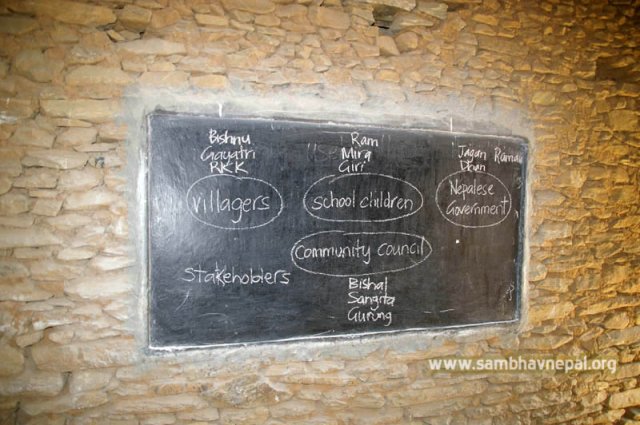 Bishnu
Gayatri
RKK
villagers
Ram
Mira
Giri
school children
Jagan Raman
Dhan
Nepalese
Government
Community council
Stakeholders
Bishal
Sangita
Gurung
www.sambhavnepal.org